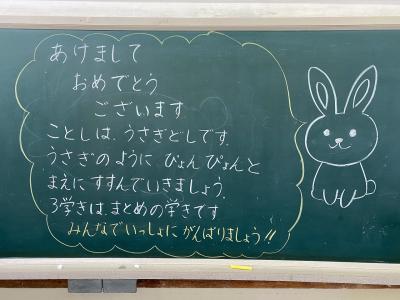 あけまして
おめでとう
ございます
ことしは、うさぎどしです。
うさぎのように ぴょんぴょんと
まえに すすんでいきましょう。
3学きは、まとめの学きです
みんなでいっしょに がんばりましょう!!